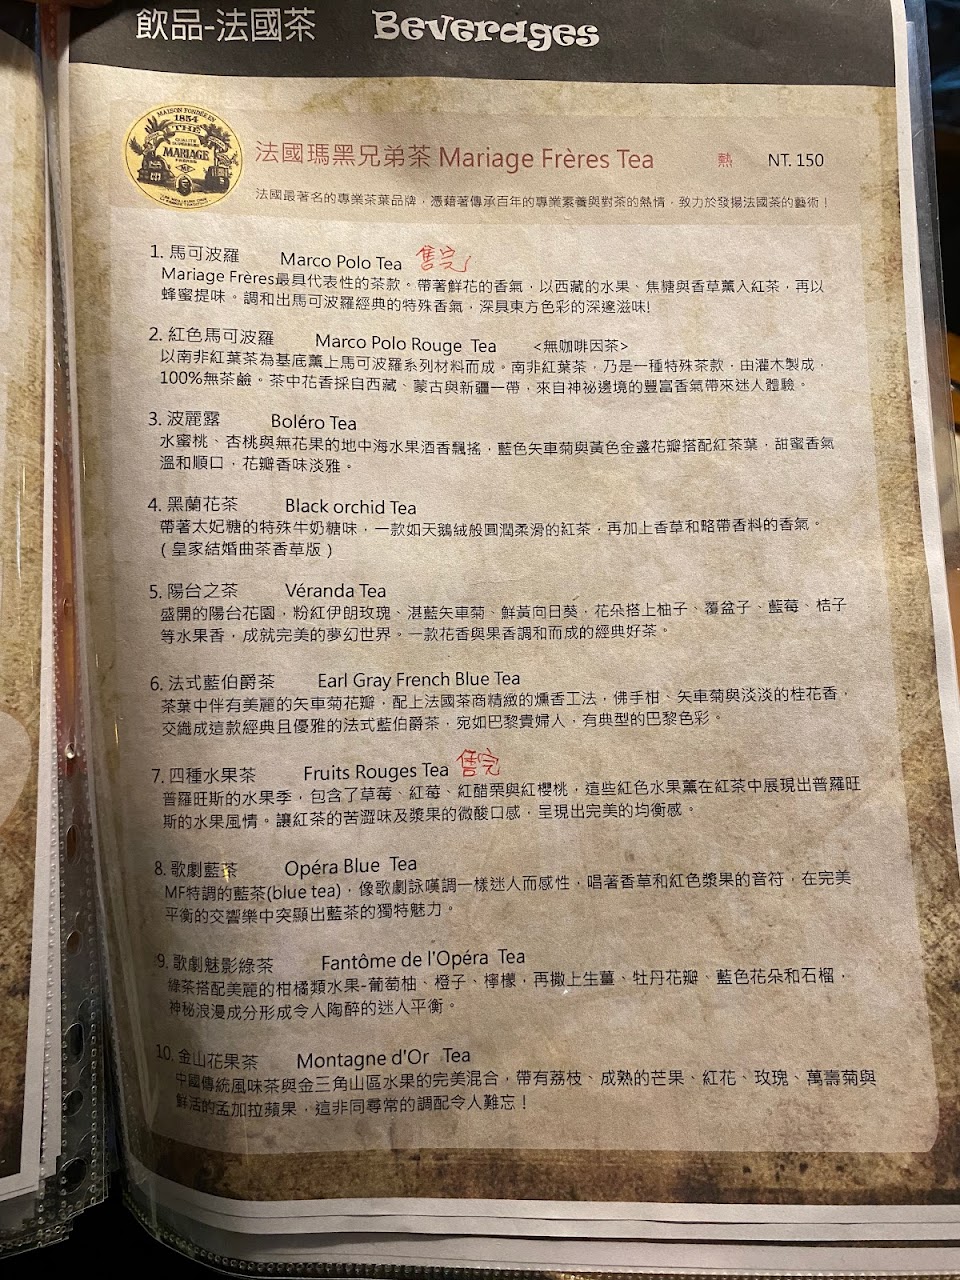 飲品-法國茶 Beverages
MAISON FONDÉE EN
1854
THE
MARIAGE
法國瑪黑兄弟茶 Mariage Frères Tea 熱 NT. 150
法國最著名的專業茶葉品牌，憑藉著傳承百年的專業素養與對茶的熱情，致力於發揚法國茶的藝術！
1. 馬可波羅 Marco Polo Tea 售完
Mariage Frères最具代表性的茶款。帶著鮮花的香氣，以西藏的水果、焦糖與香草薰入紅茶，再以
蜂蜜提味。調和出馬可波羅經典的特殊香氣，深具東方色彩的深邃滋味!
2. 紅色馬可波羅 Marco Polo Rouge Tea <無咖啡因茶>
以南非紅葉茶為基底薰上馬可波羅系列材料而成。南非紅葉茶，乃是一種特殊茶款，由灌木製成，
100%無茶鹼。茶中花香採自西藏、蒙古與新疆一帶，來自神祕邊境的豐富香氣帶來迷人體驗。
3. 波麗露 Boléro Tea
水蜜桃、杏桃與無花果的地中海水果酒香飄搖，藍色矢車菊與黃色金盞花瓣搭配紅茶葉，甜蜜香氣
溫和順口，花瓣香味淡雅。
4. 黑蘭花茶 Black orchid Tea
帶著太妃糖的特殊牛奶糖味，一款如天鵝絨般圓潤柔滑的紅茶，再加上香草和略帶香料的香氣。
( 皇家結婚曲茶香草版 )
5. 陽台之茶 Véranda Tea
盛開的陽台花園，粉紅伊朗玫瑰、湛藍矢車菊、鮮黃向日葵，花朵搭上柚子、覆盆子、藍莓、桔子
等水果香，成就完美的夢幻世界。一款花香與果香調和而成的經典好茶。
6. 法式藍伯爵茶 Earl Gray French Blue Tea
茶葉中伴有美麗的矢車菊花瓣，配上法國茶商精緻的燻香工法，佛手柑、矢車菊與淡淡的桂花香，
交織成這款經典且優雅的法式藍伯爵茶，宛如巴黎貴婦人，有典型的巴黎色彩。
7. 四種水果茶 Fruits Rouges Tea 售完
普羅旺斯的水果季，包含了草莓、紅莓、紅醋栗與紅櫻桃，這些紅色水果薰在紅茶中展現出普羅旺
斯的水果風情。讓紅茶的苦澀味及漿果的微酸口感，呈現出完美的均衡感。
8. 歌劇藍茶 Opéra Blue Tea
MF特調的藍茶(blue tea)，像歌劇詠嘆調一樣迷人而感性，唱著香草和紅色漿果的音符，在完美
平衡的交響樂中突顯出藍茶的獨特魅力。
9. 歌劇魅影綠茶 Fantôme de l'Opéra Tea
綠茶搭配美麗的柑橘類水果-葡萄柚、橙子、檸檬，再撒上生薑、牡丹花瓣、藍色花朵和石榴，
神秘浪漫成分形成令人陶醉的迷人平衡。
10. 金山花果茶 Montagne d'Or Tea
中國傳統風味茶與金三角山區水果的完美混合，帶有荔枝、成熟的芒果、紅花、玫瑰、萬壽菊與
鮮活的孟加拉蘋果，這非同尋常的調配令人難忘！